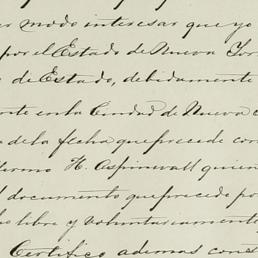 modo interesar que yo
por el Estado de Nueva Yor
de Estado, debidamente
en la Ciudad de Nueva
de la fecha que precede con
H. Aspinwall quien
documento que precede po
libre y voluntariamente
Certifico ademas const